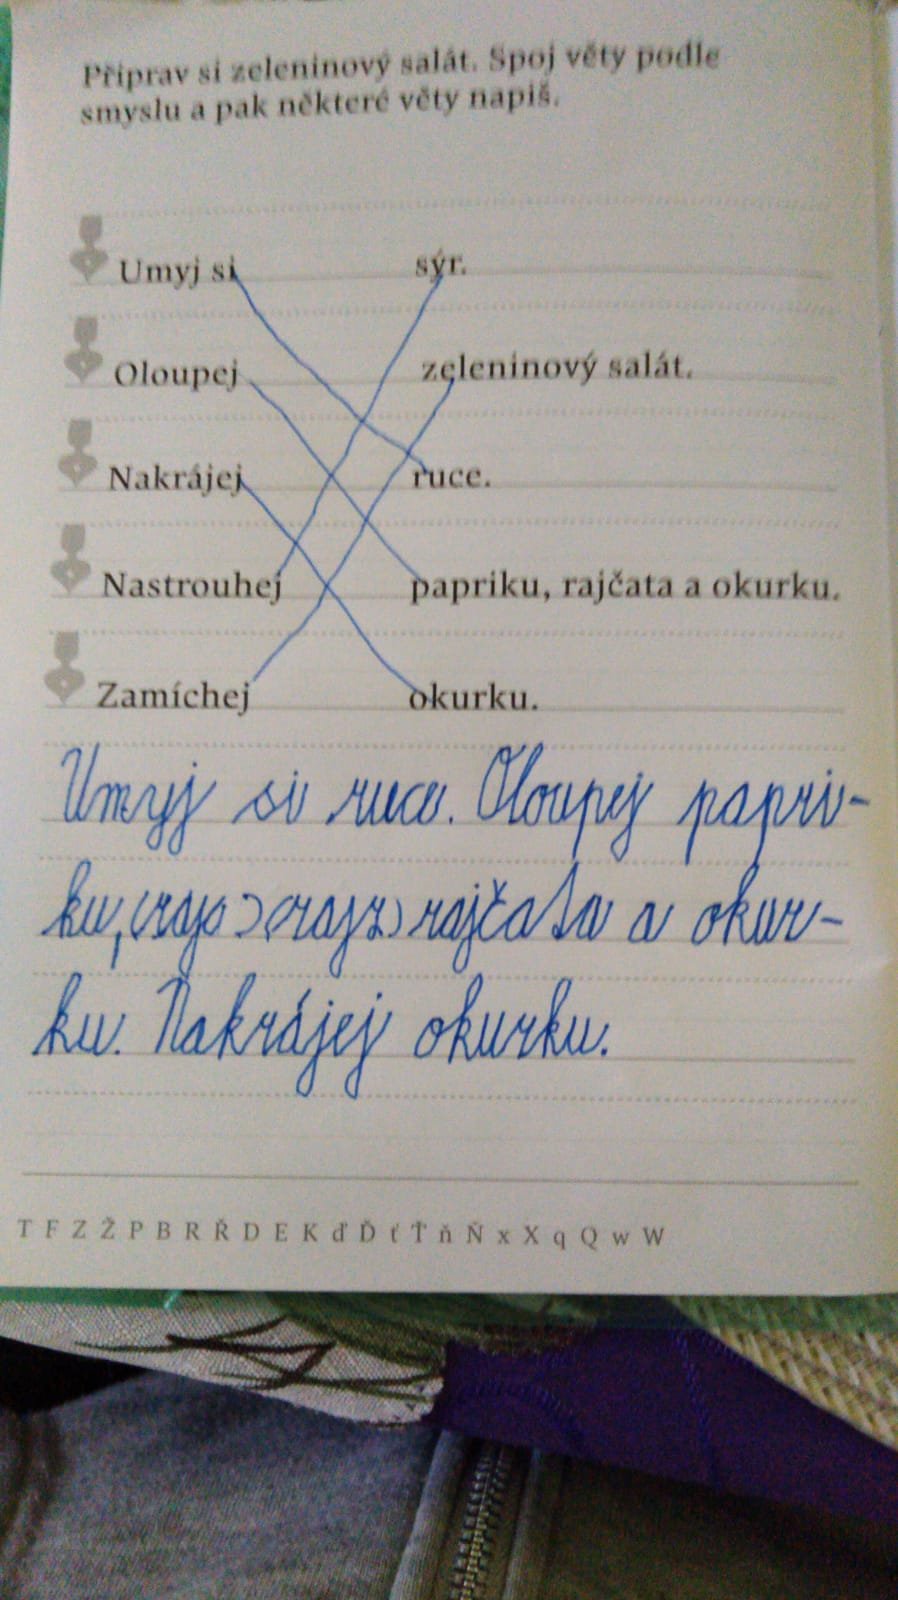 Připrav si zeleninový salát. Spoj věty podle
smyslu a pak některé věty napiš.
Umyj si sýr.
Oloupej zeleninový salát.
Nakrájej ruce.
Nastrouhej papriku, rajčata a okurku.
Zamíchej okurku.
Umyj si ruce. Oloupej papri-
ku, (raja) (rajz) rajčata a okur-
ku. Nakrájej okurku.
T F Z Ž P B R Ř D E K ď Ď ť Ť ň Ň x X q Q w W